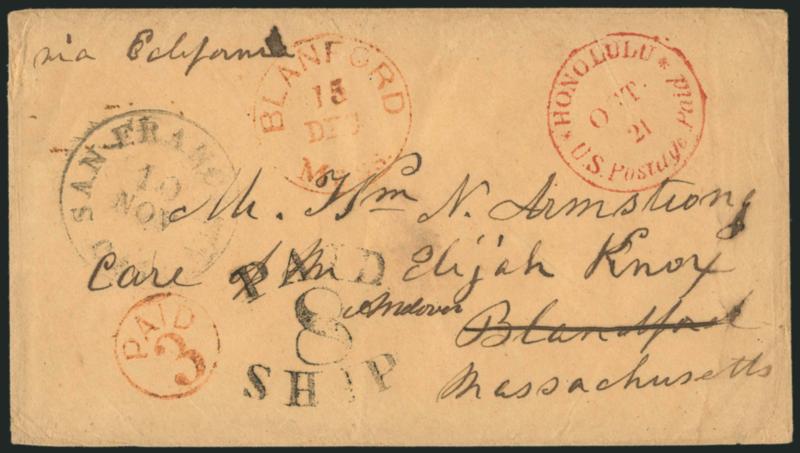 via California
BLANFORD
15
DEC
Ms
HONOLULU
OCT.
21
U.S. Postage Paid
SAN FRAN
10
NOV
Mr. Wm N. Armstrong
Care of Mr Elijah Knox
Andover
Blandford
Massachusetts
PAID
8
SHIP
PAID
3